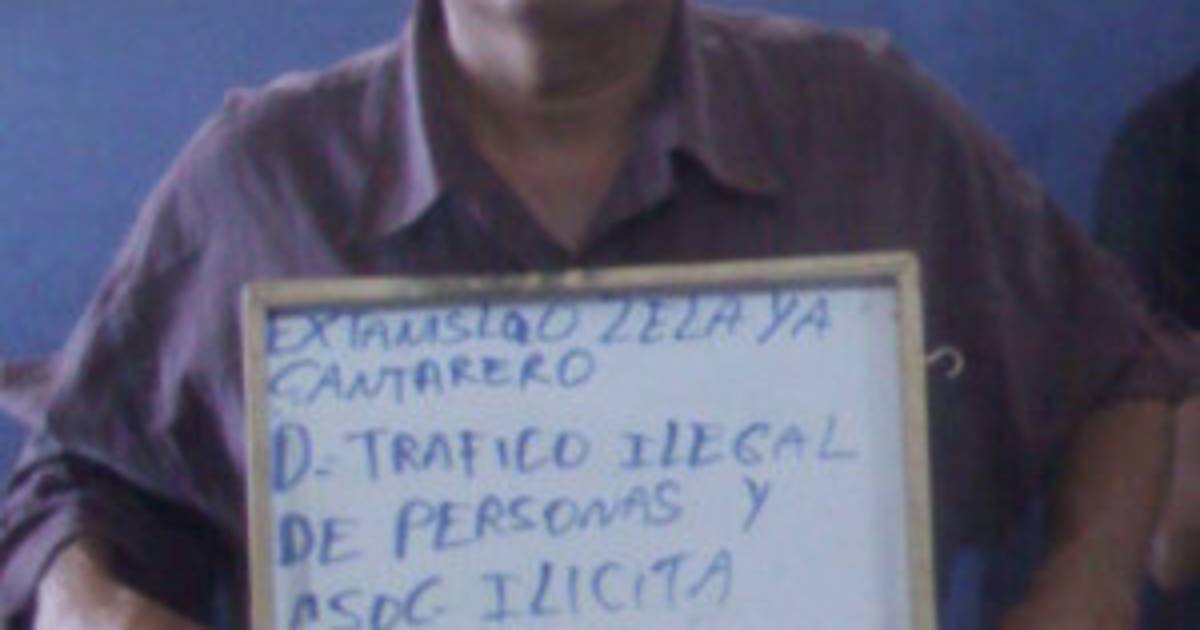 EXTANISLaO ZELAYA
CANTARERO
D-TRAFICO ILEGAL
DE PERSONAS Y
ASOC ILICITA